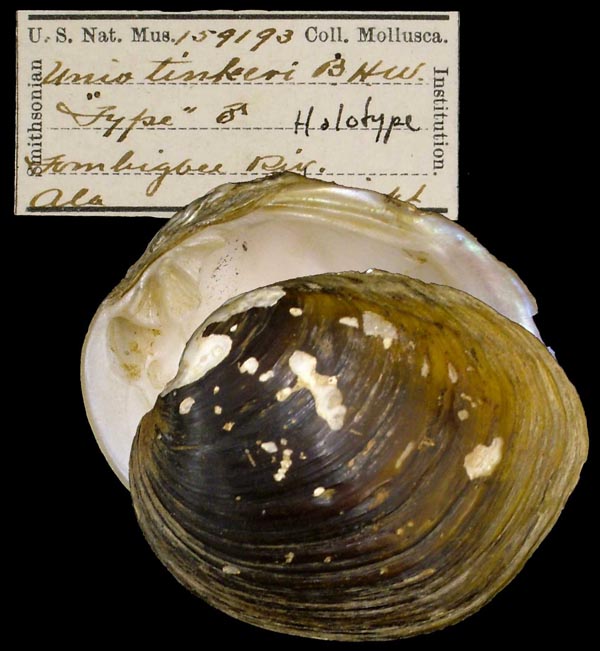 U. S. Nat. Mus. 159193 Coll. Mollusca.
Smithsonian
Unio tinkeri B H W.
"Type" ♂
Holotype
Tombigbee Riv.
Ala
Institution.